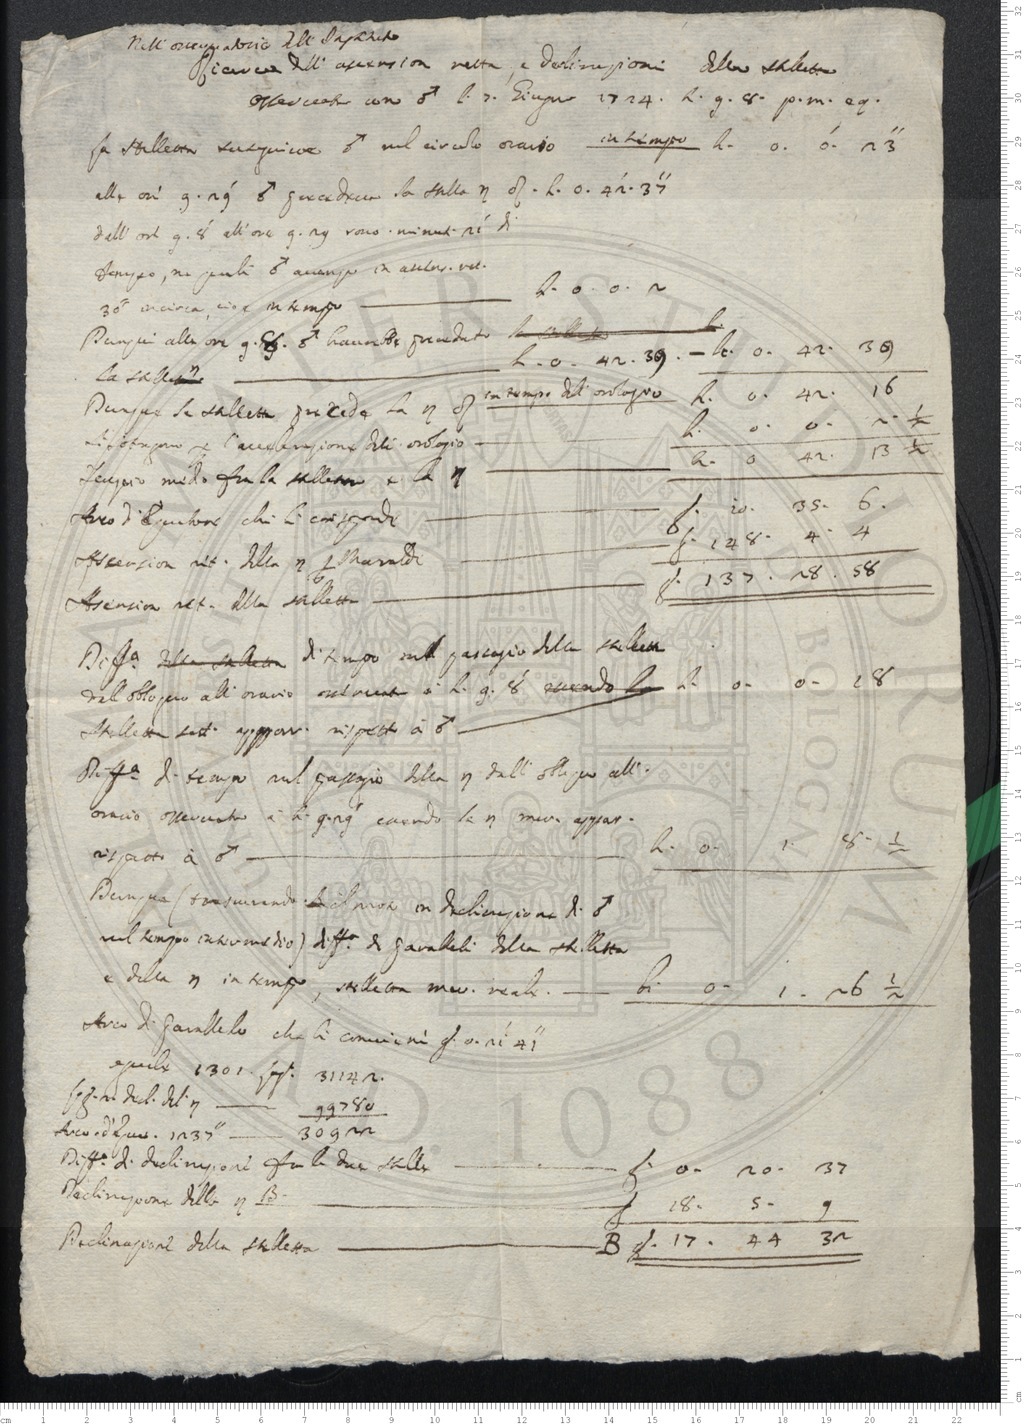 Nell'osservatorio dell'Instituto
Ricerca dell'ascension retta, e declinazione della stelletta
osservata con ♂ l. 7. Giugno 1724. h. 9. 8. p.m. eq.
La stelletta seguiva ♂ nel circolo orario in tempo h. 0. 0' 23''
alle ore 9. 29' ♂ precedeva la stella η ♌. h. 0. 42'. 37''
dall'ore 9. 8' all'ore 9. 29 sono minuti 21' di
tempo, ne quali ♂ avanza in ascens. ret.
30'' incirca, cioè in tempo h. 0. 0. 2
Dunque alle ore 9. 8. ♂ havrebbe preceduto
la stella η h. 0. 42. 39. — h. 0. 42. 39
Dunque la stelletta precede la η ♌ in tempo dell'orologio h. 0. 42. 16
per l'accelerazione dell'orologio h. 0. 0. 2 1/2
Tempo medio fra la stelletta e la η h. 0 42. 13 1/2
Arco d'Equatore che li corrisponde g. 10. 35. 6.
Ascension ret. della η g. 148. 4. 4
Ascension ret. della stelletta g. 137. 28. 58
Diffa. della stelletta di tempo nel passagio della stelletta
dall'obliquo all'orario osservata à h. 9. 8' essendo la h. 0. 0. 18
stelletta sett. appar. rispetto à ♂
Diffa. di tempo nel passagio della η dall'obliquo all'
orario osservato à h. 9. 29' essendo la η mer. appar.
rispetto à ♂ h. 0. 1. 8. 1/2
Dunque (trascurando il moto in declinazione di ♂
nel tempo intermedio) diffa. di paralleli della stelletta
e della η in tempo, stelletta mer. reale. h. 0. 1. 26 1/2
Arco di Parallelo che li conviene g. 0. 21' 41''
1301 31142.
decl. del η 99780
Arco d'Equ. 1237'' 30922
Diffa. di declinazione fra le due stelle g. 0. 20. 37
Declinazione della η B. g. 18. 5. 9
Declinazione della stelletta B g. 17. 44 32
ALMA MATER STUDIORUM
UNIVERSITÀ DI BOLOGNA
A.D. 1088